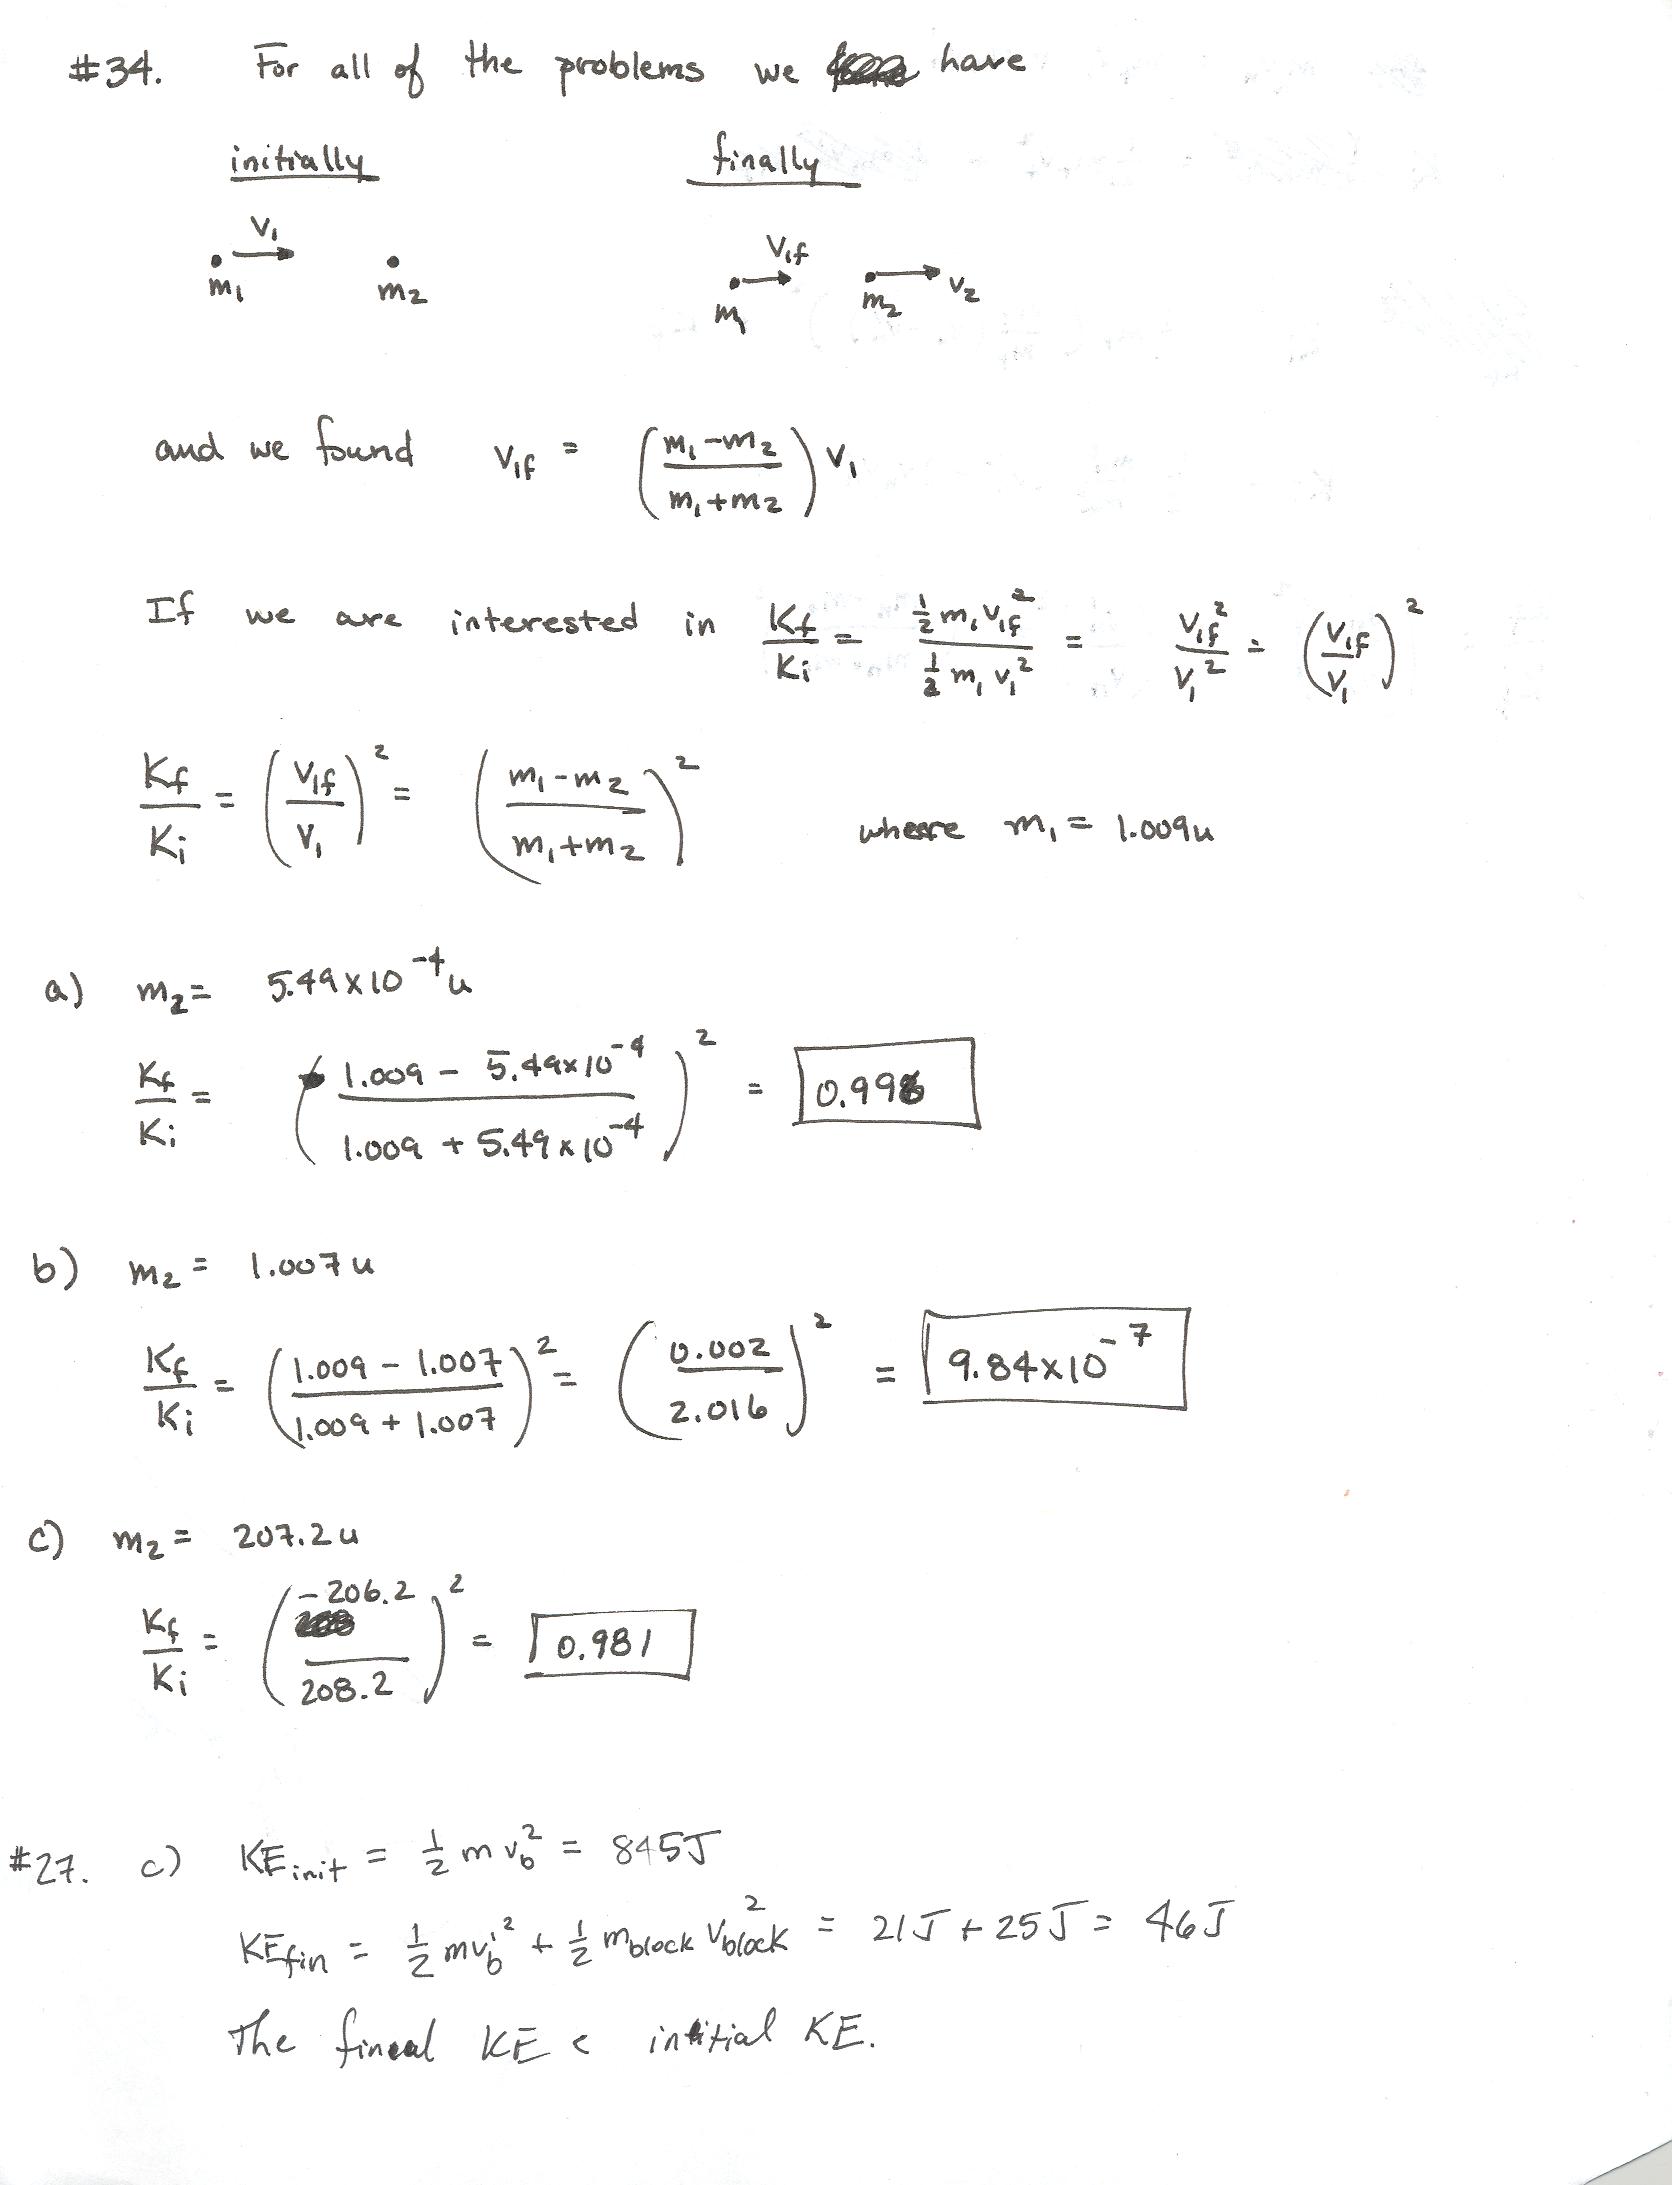 #34. For all of the problems we have
initially finally
v₁ v₁f
m₁ m₂ m₁ m₂ v₂
and we found v₁f = ((m₁-m₂)/(m₁+m₂)) v₁
If we are interested in Kf/Ki = (½ m₁ v₁f²)/(½ m₁ v₁²) = v₁f²/v₁² = (v₁f/v₁)²
Kf/Ki = (v₁f/v₁)² = ((m₁-m₂)/(m₁+m₂))² where m₁ = 1.009u
a) m₂ = 5.49x10⁻⁴u
Kf/Ki = ((1.009 - 5.49x10⁻⁴)/(1.009 + 5.49x10⁻⁴))² = 0.998
b) m₂ = 1.007u
Kf/Ki = ((1.009 - 1.007)/(1.009 + 1.007))² = (0.002/2.016)² = 9.84x10⁻⁷
c) m₂ = 207.2u
Kf/Ki = (-206.2/208.2)² = 0.981
#27. c) KEinit = ½ m vb² = 845J
KEfin = ½ mvb'² + ½ mblock vblock² = 21J + 25J = 46J
The final KE < initial KE.